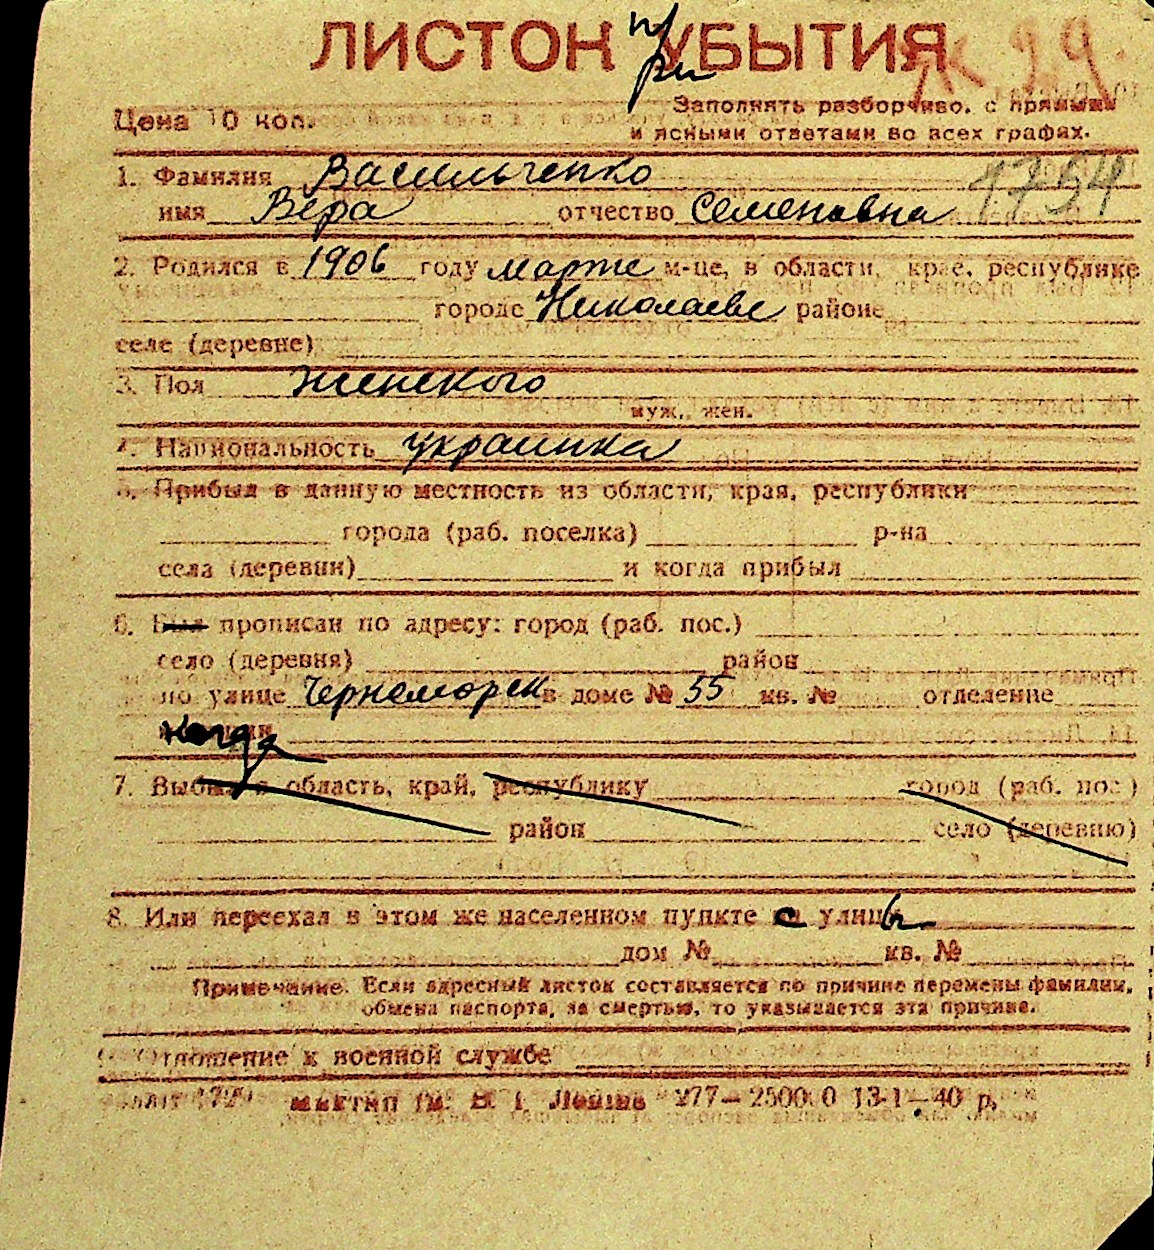 ЛИСТОК при УБЫТИЯ
Ж 99
Цена 10 коп.
Заполнять разборчиво, с прямыми
и ясными ответами во всех графах.
1. Фамилия Васильченко
1754
имя Вера отчество Семеновна
2. Родился в 1906 году марте м-це, в области, крае, республике
городе Николаеве районе
селе (деревне)
3. Пол женского
муж., жен.
4. Национальность украинка
5. Прибыл в данную местность из области, края, республики
города (раб. поселка) р-на
села (деревни) и когда прибыл
6. Был прописан по адресу: город (раб. пос.)
село (деревня) район
по улице Черноморск в доме № 55 кв. № отделение
когда
7. Выбыл в область, край, республику город (раб. пос.)
район село (деревню)
8. Или переехал в этом же населенном пункте с улицы
дом № кв. №
Примечание. Если адресный листок составляется по причине перемены фамилии,
обмена паспорта, за смертью, то указывается эта причина.
9. Отношение к военной службе
277—25000 13-I—40 р.